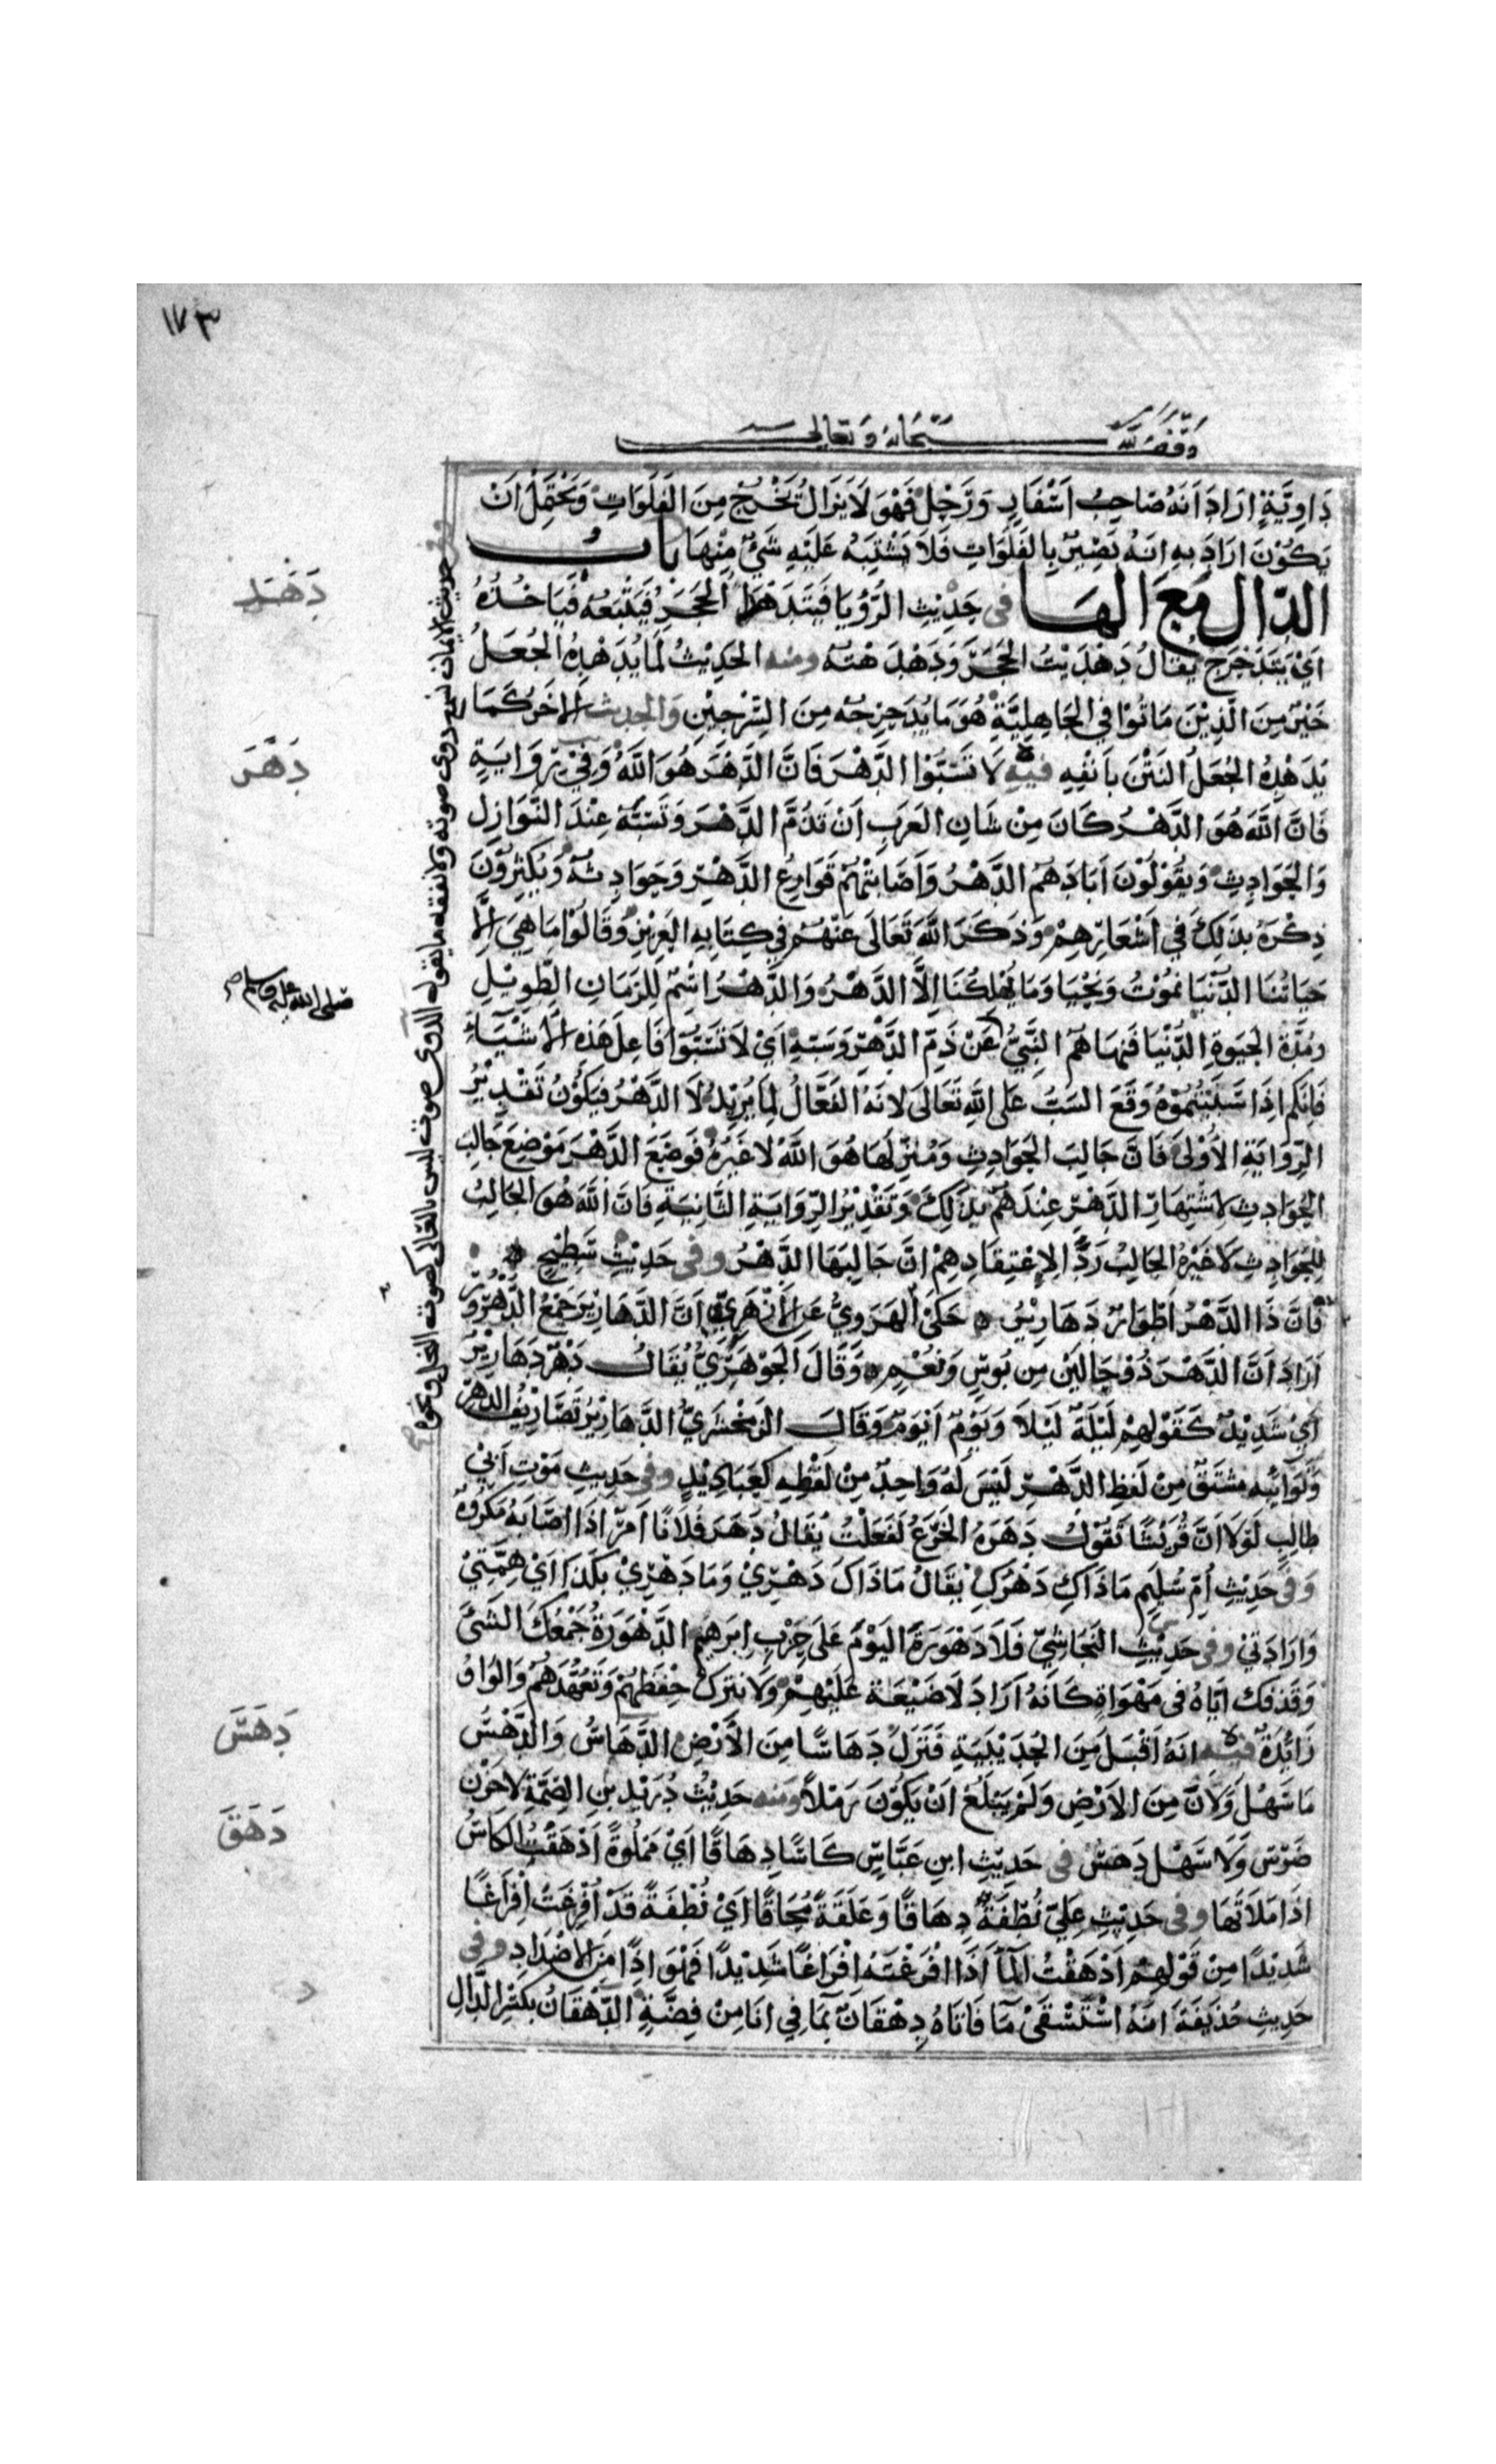 ١٧٣
وقف لله سبحانه وتعالى
دَاوِيَّةٍ ارَادَ اَنَهُ صَاحِبُ اَسْفَارٍ وَرَجْلٍ فَهْوَ لَا يَزَالُ يَخْرُجُ مِنَ الفَلَوَاتِ وَيَحْتَمِلْ اَنْ
يَكُوْنَ ارَادَ بِهِ انهُ بَصِيْرٌ بِالفَلَوَاتِ فَلَا يَشْتَبِهُ عَلَيْهِ شَيْءٌ مِنْهَا بابُ
الدّال مَعَ الهَا فى حَدِيْثِ الرُّؤْيَا فَيَتَدَهْدَا الحَجَرُ فَيَتْبَعُهُ فَيَاخُذُهُ
اَيْ يَتَدَحْرَج يُقَالُ دَهْدَيْتُ الحَجَرَ وَدَهْدَ هْتَه ومنه الحَدِيْثُ لَمَا يُدَهْدِهُ الجُعَلُ
خَيْرٌ مِنَ الَّذِيْنَ مَاتُوْا فِي الجَاهِلِيَّةِ هُوَ مَا يُدَحْرِجُه مِنَ السِّرْجِيْنِ وَالحديث الاخَرُ كَمَا
يُدَهْدِهُ الجُعَلُ النَتْنَ بِاَنْفِهِ فيه لَا تَسُبّوْا الدَّهْرَ فَانَّ الدَّهْرَ هُوَ اللَّهُ وَفِيْ رِوَايَةٍ
فَانَّ اللَّهَ هُوَ الدَّهْرُ كَانَ مِنْ شَانِ العَرَبِ اَنْ تَذُمَّ الدَّهْرَ وَتَسُبَّهُ عِنْدَ النَّوَازِلِ
وَالحَوَادِثِ وَيَقُوْلُوْنَ اَبَادَهُمُ الدَّهْرُ وَاَصَابَتْهُمْ قَوَارِعُ الدَّهْرِ وَحَوَادِثُهُ وَيُكْثِرُوْنَ
ذِكْرَهُ بِذَلِكَ فِي اَشْعَارِهِمْ وَذَكَرَ اللَّهَ تَعَالَى عَنْهُمْ فِي كِتَابِهِ العَزِيْزِ وَقَالُوْا مَا هِيَ اِلَّا
حَيَاتُنَا الدُّنْيَا نَمُوْتُ وَنَحْيَا وَمَا يُهْلِكُنَا اِلَّا الدَّهْرُ وَالدَّهْرُ اسْمٌ لِلزَّمَانِ الطَّوِيْلِ
وَمُدَّةِ الحَيوةِ الدُّنْيَا فَنَهَاهُمُ النَّبِيُّ عَنْ ذَمِّ الدَّهْرِ وَسَبِّهِ اَيْ لَا تَسُبّوْا فَاعِلَ هَذِهِ الاَشْيَآءَ
فَانَّكم اِذَا سَبَبْتُمُوْهُ وَقَعَ السَبّ عَلَى اللَّهِ تَعَالَى لانَهُ الفَعَّالُ لِمَا يُرِيْدُ لَا الدَّهْرُ فَيَكُوْنُ تَقْدِيْرُ
الرِّوَايَةِ الاُوْلَى فَانَّ جَالِبَ الحَوَادِثِ وَمُنْزِلَهَا هُوَ اللَّهُ لَا غَيْرُهُ فَوَضَعَ الدَّهْرَ مَوْضِعَ جَالِبِ
الحَوَادِثِ لاشْتِهَارِ الدَّهْرِ عِنْدَهُمْ بِذَلِكَ وَتَقْدِيْرُ الرِّوَايَةِ الثَّانِيَةِ فَانَّ اللَّهَ هُوَ الجَالِبُ
لِلحَوَادِثِ لَا غَيْرُهُ الجَالِبُ رَدًّا لِاعْتِقَادِهِمْ انَّ جَالِبَهَا الدَّهْرُ وفى حَدِيْثِ سَطِيْحٍ
فَانَّ ذَا الدَّهْرُ اَطْوَارٌ دَهَارِيْرُ حَكَىْ الهَرَوِيُّ عَنِ الازْهَرِيِّ انَّ الدَّهَارِيْرَ جَمْعُ الدُّهُوْرِ
اَرَادَ اَنَّ الدَّهْرَ ذُوْ حَالَيْنِ مِن بُوسٍ وَنُعْمٍ وَقَالَ الجَوْهَرِيُّ يُقَالُ دَهْرٌ دَهَارِيْرُ
اَيْ شَدِيْدٌ كَقَوْلِهِمْ لَيْلَةٌ لَيْلَا وَيَوْمٌ اَيْوَمُ وَقَالَ الزمَخْشَرِيُّ الدَّهَارِيْرُ تَصَارِيْفُ الدهْرِ
وَنَوَائِبُه مُشْتَقٌّ مِنْ لَفْظِ الدَّهْرِ لَيْسَ لَهُ وَاحِدٌ مِنْ لَفْظِهِ كعَبَادِيْدٍ وفى حَدِيثِ مَوْتِ اَبِيْ
طالِبٍ لَوْلَا اَنَّ قُرَيْشًا تَقُوْلُ دَهَرَهُ الجَزَعُ لَفَعَلْتُ يُقَالُ دَهَرَ فُلَانًا اَمرٌ اذَا اصَابَهُ مَكْرُوهٌ
وَفى حَدِيْثِ اُمِّ سُلَيمٍ مَا ذَاكِ دَهْرُكِ يُقَالُ مَا ذَاكَ دَهْرِيْ وَمَا دَهْرِيْ بِكَذَا اَيْ هِمَّتِيْ
وَارَادَتِيْ وفى حَدِيْثِ النَجَاشِيِّ فَلَا دَهْوَرَةَ اليَوْمَ عَلَى حِزْبِ ابرَهِيْمَ الدَّهْوَرَةُ جَمْعُكَ الشَىْءَ
وَقَذْفُكَ ايَّاهُ فى مَهْوَاةٍ كَانَهُ اَرَادَ لَا ضَيْعَةَ عَلَيْهِمْ وَلَا نَتركُ حِفْظَهُمْ وَتَعَهُّدَهُمْ وَالوَاوُ
زَائِدَةٌ فيه انَهُ اَقْبَلَ مِنَ الحُدَيْبِيَةِ فَنَزَلَ دَهَاسًا مِنَ الاَرْضِ الدَّهَاسُ وَالدَّهْسُ
مَا سَهُلَ وَلَانَ مِنَ الاَرْضِ وَلَمْ يَبْلُغْ اَنْ يَكُوْنَ رَمْلًا ومنه حَدِيْثُ دُرَيْدِ بنِ الصِّمَّةِ لَا حَزْن
ضَرْسٌ وَلَا سَهْلٌ دَهسٌ فى حَدِيْثِ ابنِ عَبَّاسٍ كَاسًا دِهَاقًا اَيْ مَمْلُوَةً اَدْهَقْتُ الكَاسَ
اذَا مَلَاتَهَا وفى حَدِيْثِ عَلِيّ نُطْفَةً دِهَاقًا وَعَلَقَةً مُحَاقًا اَيْ نُطْفَةً قَدْ اُفْرِغَتْ اِفْرَاغًا
شَدِيْدًا مِنْ قَوْلِهِمْ اَدْهَقْتُ المآءَ اذَا افْرَغْتَهُ اِفْرَاغًا شَدِيْدًا فَهْوَ اذًا مِنَ الاضْدَادِ وفى
حَدِيثِ حُذَيفَةَ انهُ اسْتَسْقَىْ مآ فَاَتَاهُ دِهْقَانٌ بمَا فِي انَا مِنْ فِضَّةٍ الدِّهْقَانُ بِكَسْرِ الدَّالِ
دَهْدَ
دَهَرَ
صلى الله عليه وسلم صح
دَهَسَ
دَهَقَ
حديث الايمان نسمع دوى صوته ولا نفقه ما يقول الدوى صوت ليس بالعالى كصوت النحل ونحوه